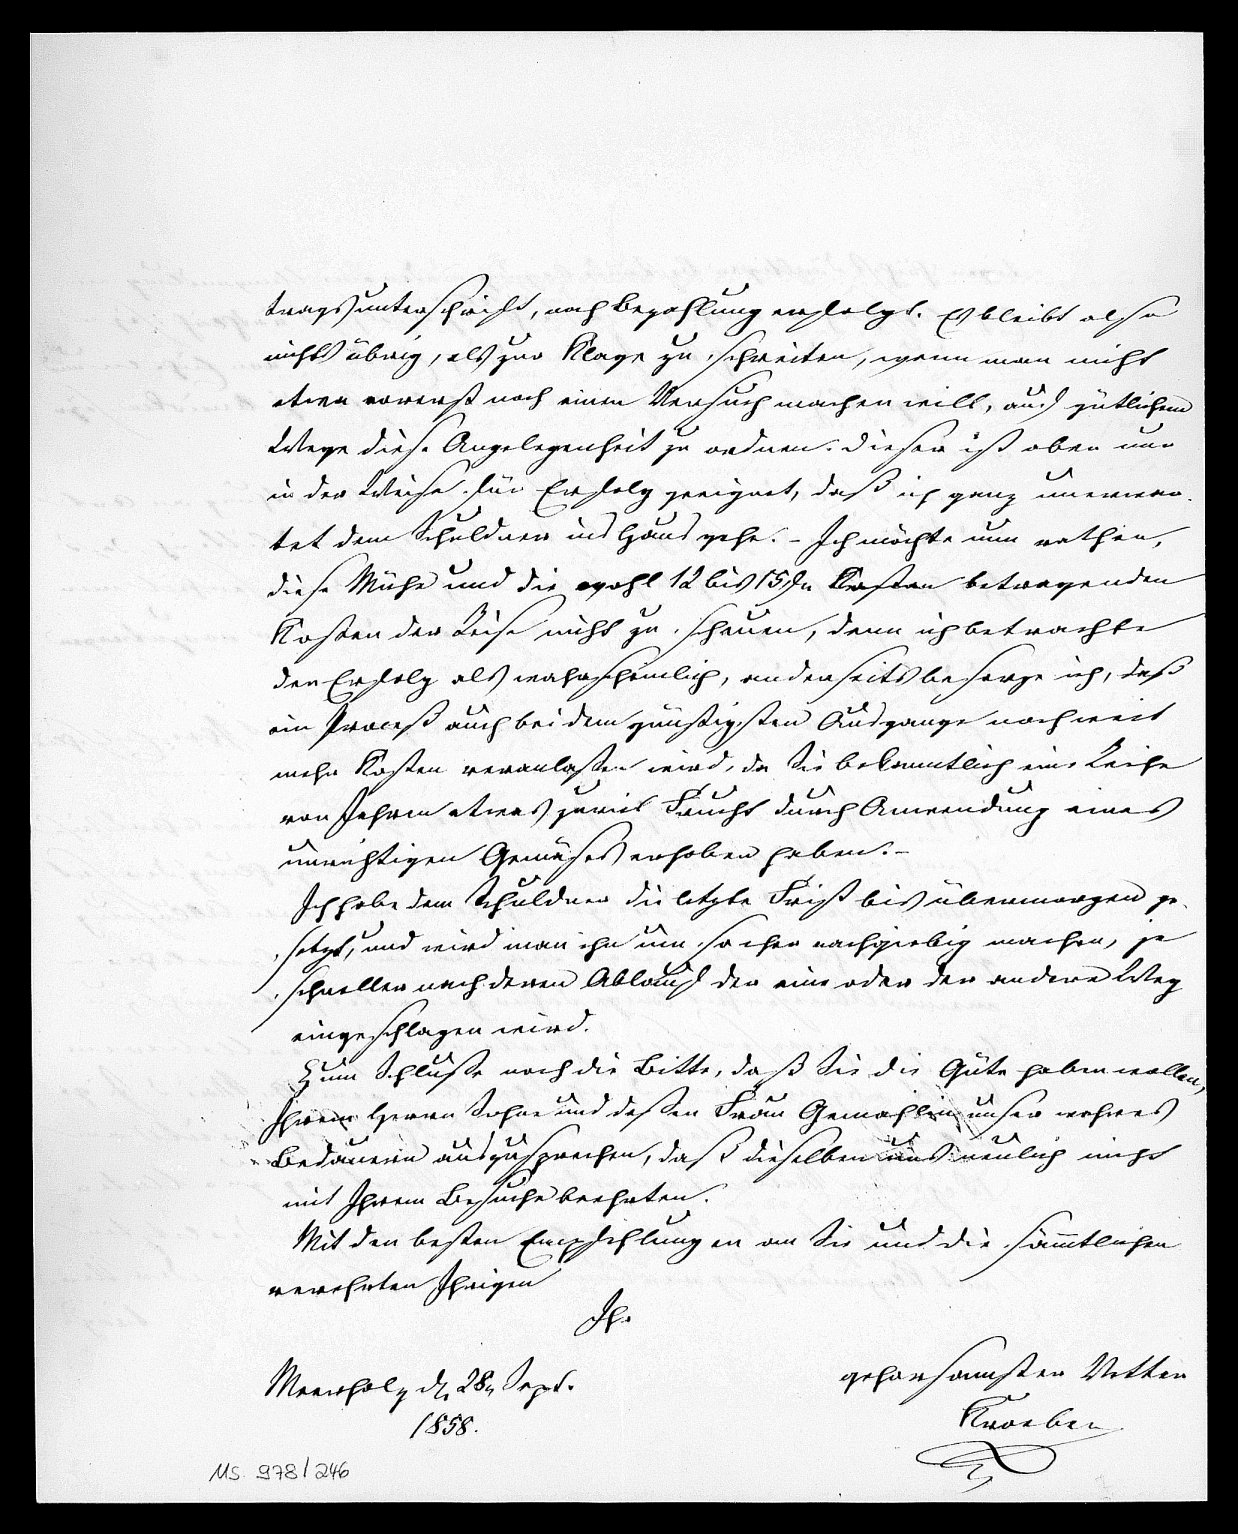 tragsunterschrift, noch Bezahlung erfolgt. Es bleibt also
nichts übrig, als zur Klage zu schreiten, wenn man nicht
etwa vorerst noch einen Versuch machen will, auf gütlichem
Wege diese Angelegenheit zu ordnen. Dieser ist aber nur
in der Weise für Erfolg geeignet, daß ich ganz unerwar-
tet dem Schuldner ins Haus gehe. – Ich möchte nun rathen,
diese Mühe und die wohl 12 bis 15 Kosten betragenden
Kosten der Reise nicht zu scheuen, denn ich betrachte
den Erfolg als wahrscheinlich, anderseits besorge ich, daß
ein Proceß auch bei dem günstigsten Ausgange noch weit
mehr Kosten veranlaßen wird, da Sie bekanntlich eine Reihe
von Jahren etwas zuviel Frucht durch Anwendung eines
unrichtigen Gemäses erhoben haben. –
Ich habe dem Schuldner die letzte Frist bis übermorgen ge-
setzt, und wird man ihn um so eher nachgiebig machen, je
schneller nach deren Ablauf der eine oder der andere Weg
eingeschlagen wird.
Zum Schluße noch die Bitte, daß Sie die Güte haben wollen,
Ihrem Herrn Sohne und deßen Frau Gemahlin unser wahres
Bedauern auszusprechen, daß dieselben uns neulich nicht
mit Ihrem Besuche beehrten.
Mit den besten Empfehlungen an Sie und die sämtlichen
verehrten Ihrigen
Ihr
Meerholz d. 28n Sept.
1858.
gehorsamster Vetter
Kroeber
MS. 978/246